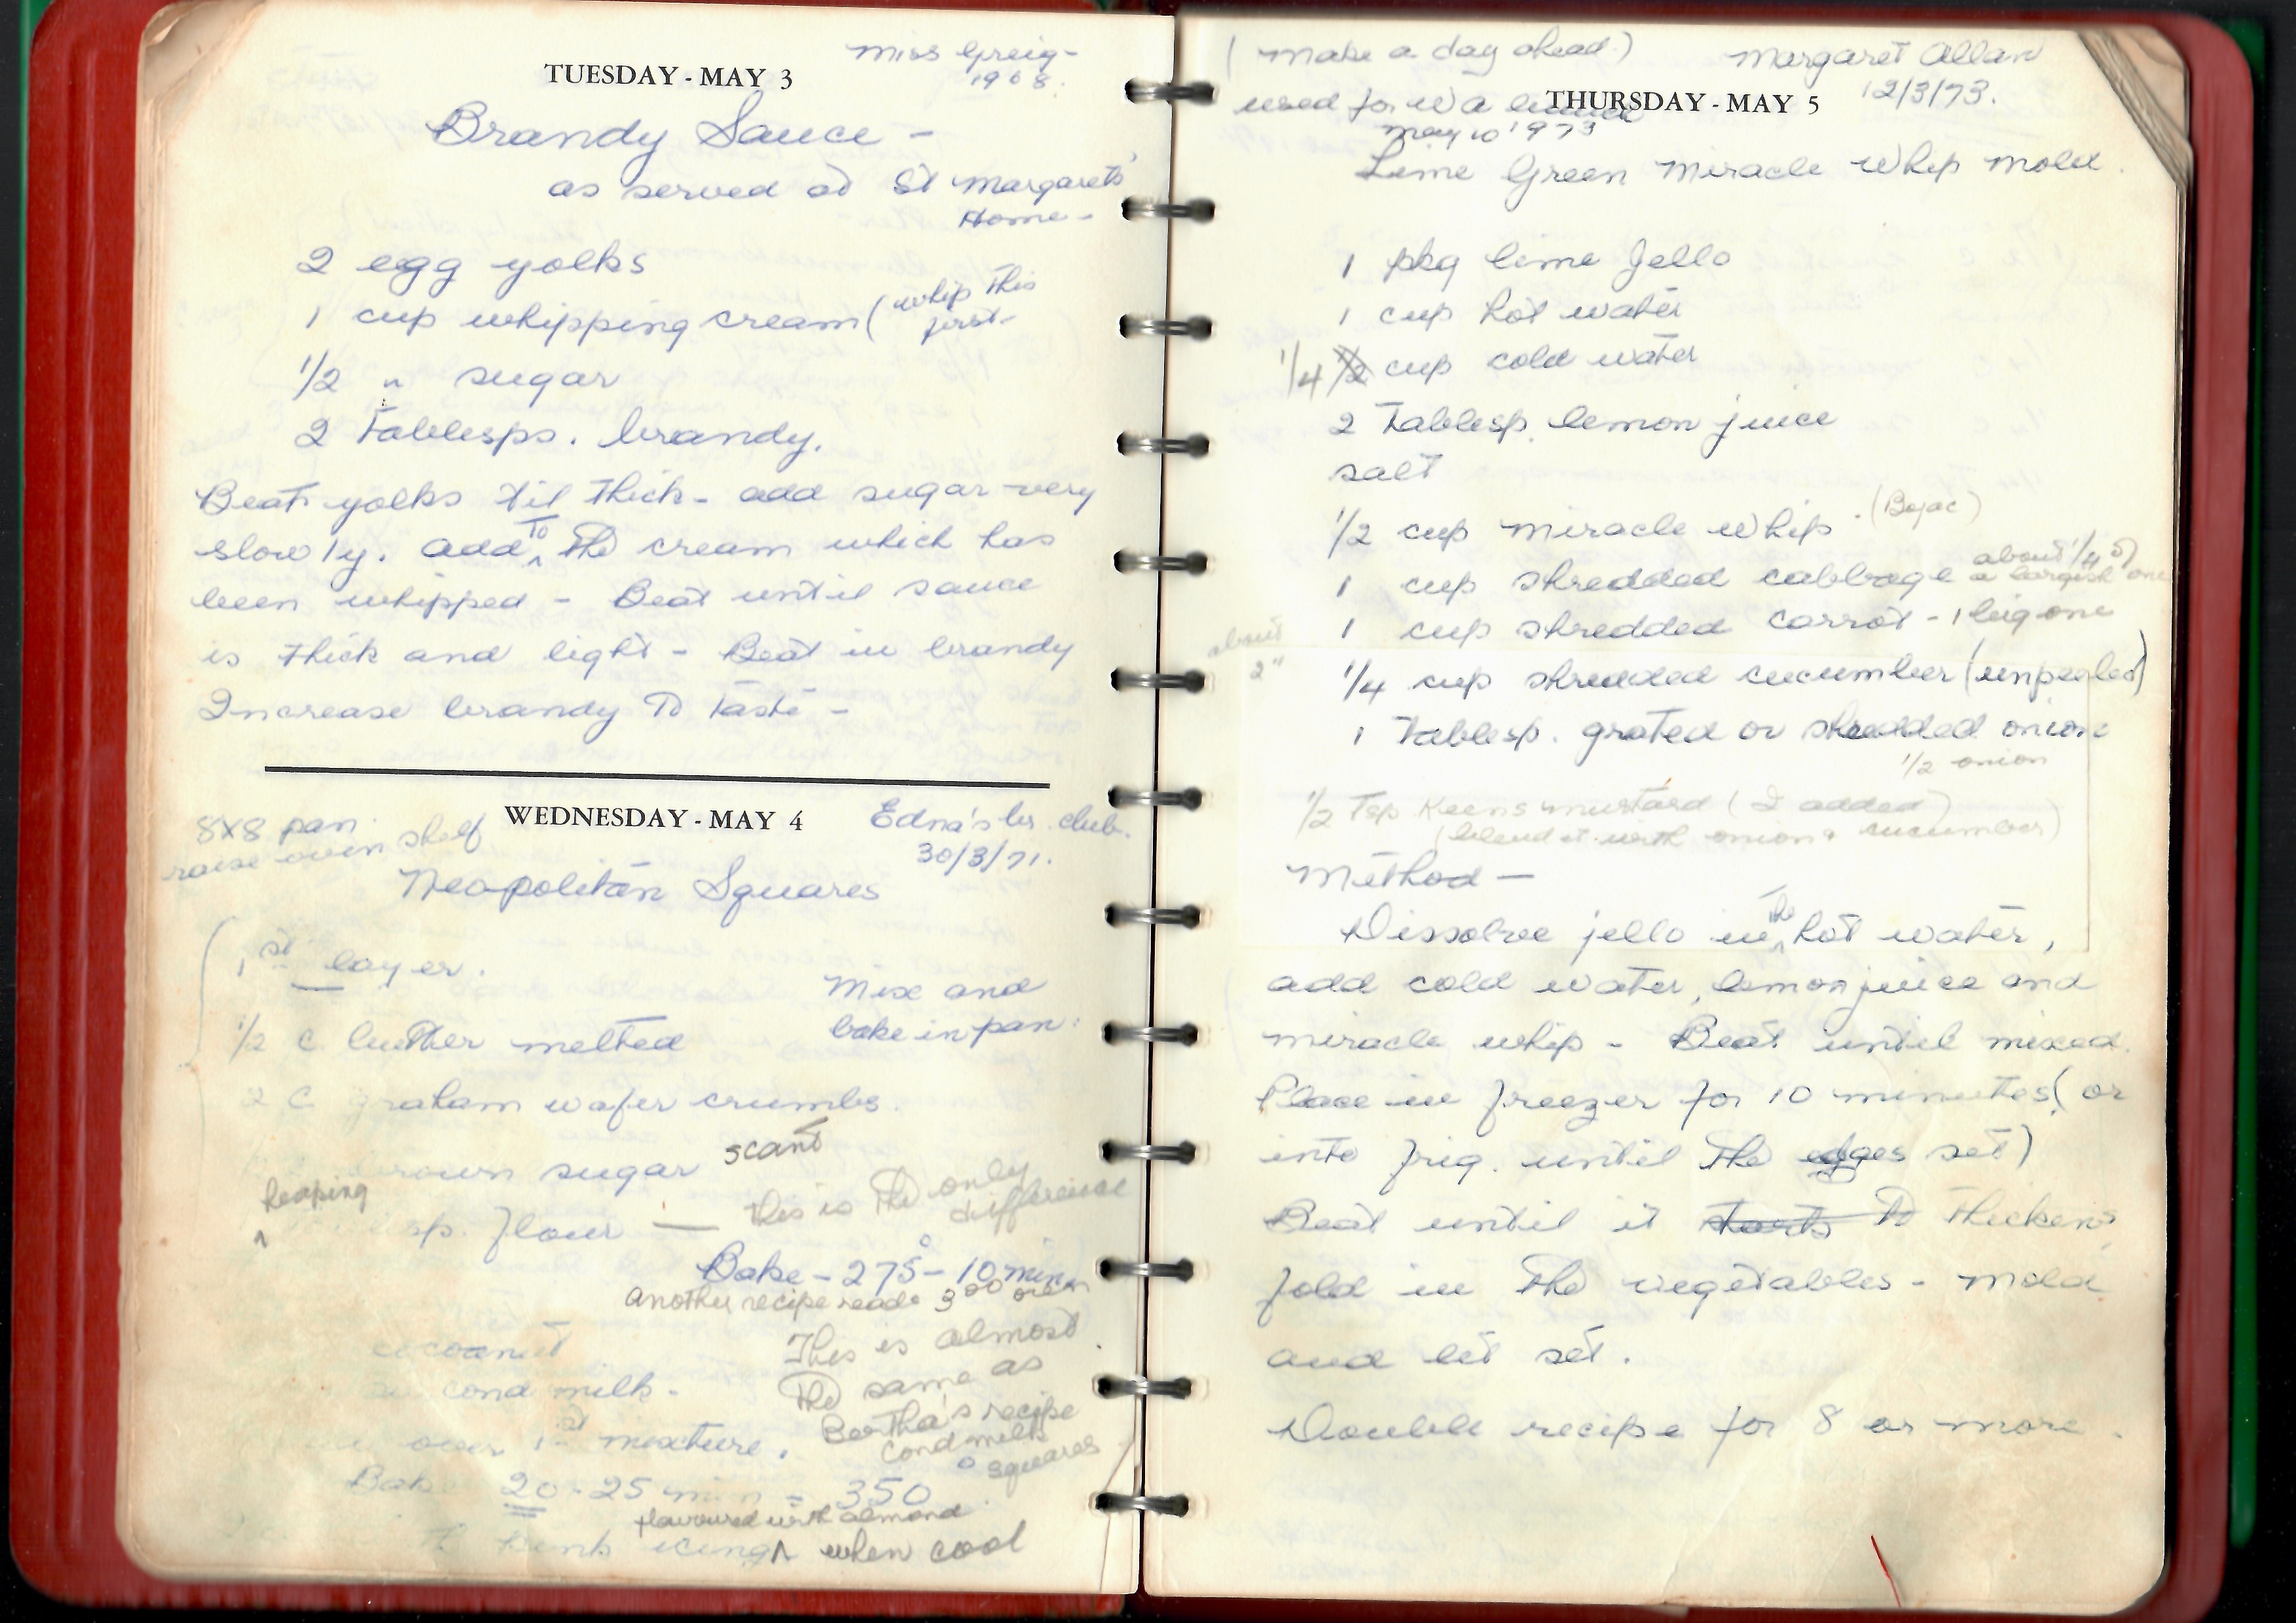 Miss Greig-
TUESDAY - MAY 3
1968.
Brandy Sauce -
as served at St Margarets'
Home -
2 egg yolks
1 cup whipping cream (whip this
first-
1/2 " sugar
2 Tablesps. brandy.
Beat yolks 'til thick - add sugar very
slowly. add To the cream which has
been whipped - Beat until sauce
is thick and light - Beat in brandy
Increase brandy to taste -
WEDNESDAY - MAY 4
8x8 pan
raise oven shelf
Edna's br. club.
30/3/71.
Neopolitan Squares
1st layer.
Mix and
bake in pan.
1/2 c butter melted
2 C graham wafer crumbs.
brown sugar scant
heaping
sp. flour — this is the only
difference
Bake - 275° - 10 min
another recipe reads 300 oven
cocoanut
cond milk.
This is almost
the same as
Bertha's recipe
cond milk
squares
over 1st mixture.
Bake 20-25 min - 350°
flavoured with almond
icing ^ when cool
(make a day ahead)
Margaret Allan
12/3/73.
used for
THURSDAY - MAY 5
May 10 1973
Lime Green Miracle Whip Mold.
1 pkg lime Jello
1 cup hot water
1/4 1/2 cup cold water
2 Tablesp. lemon juice
salt
1/2 cup miracle whip. (Bojac)
1 cup shredded cabbage about 1/4 of
a largish one
1 cup shredded carrot - 1 big one
about
2"
1/4 cup shredded cucumber (unpeeled)
1 Tablesp. grated or shredded onion
1/2 onion
1/2 Tsp Keens mustard (I added)
(blend it with onion & cucumber)
Method -
Dissolve jello in the hot water,
add cold water, lemon juice and
miracle whip - Beat until mixed.
Place in freezer for 10 minutes (or
into frig. until the edges set)
Beat until it starts to thickens,
fold in the vegetables - mold
and let set.
Double recipe for 8 or more.